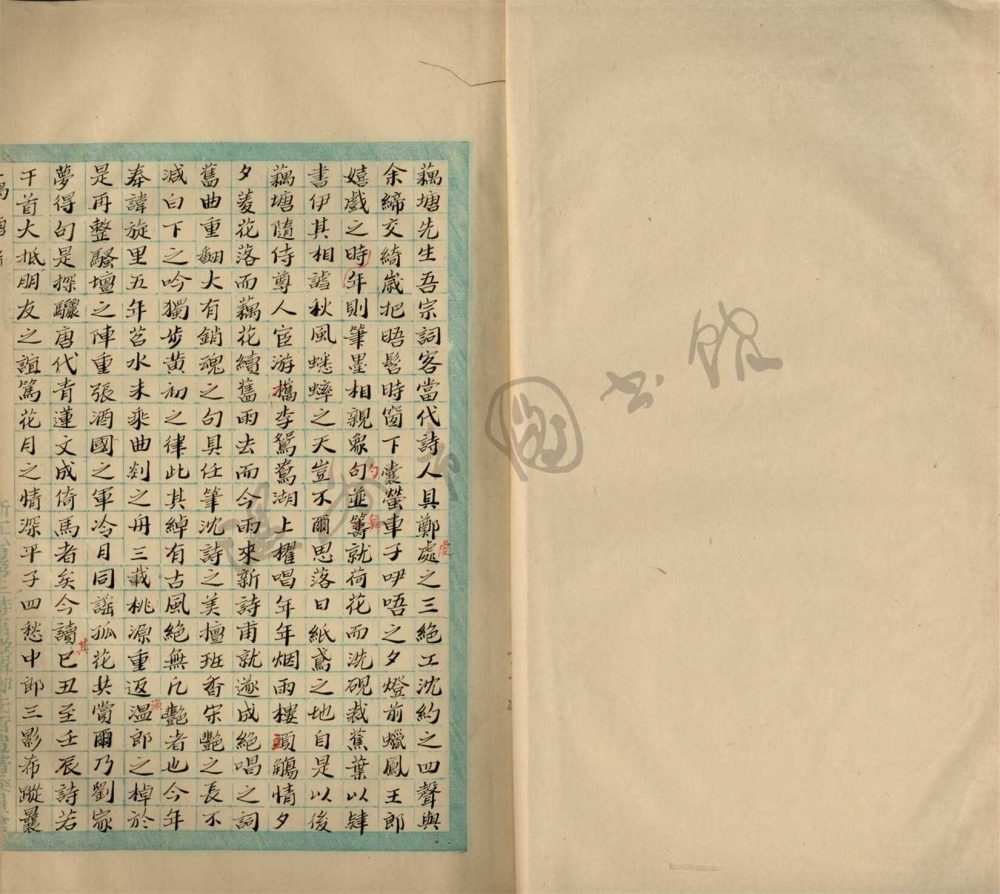 藕塘先生吾宗詞客當代詩人具鄭處之三絕工沈約之四聲與
余締交綺歲把晤髫時窗下囊螢車子咿唔之夕燈前蠟鳳王郎
嬉戲之時年則筆墨相親裂句並籌就荷花而洗硯裁蕉葉以肄
書伊其相謔秋風蟋蟀之天豈不爾思落日紙鳶之地自是以後
藕塘隨侍尊人宦游檇李鴛鴦湖上櫂唱年年烟雨樓頭觴情夕
夕菱花落而藕花續舊雨去而今雨來新詩甫就遂成絕唱之詞
舊曲重翻大有銷魂之句具任筆沈詩之美擅班香宋艷之長不
減白下之吟獨步黃初之律此其綽有古風絕無凡艷者也今年
奉諱旋里五年苕水未乘曲剡之舟三載桃源重返温郎之棹於
是再整騷壇之陣重張酒國之軍冷月同謡孤花共賞爾乃劉家
夢得句是探驪唐代青蓮文成倚馬者矣今讀巳丑至壬辰詩若
干首大抵朋友之誼篤花月之情深平子四愁中郎三影希蹤曩
虔
勻
算
其
圖書館